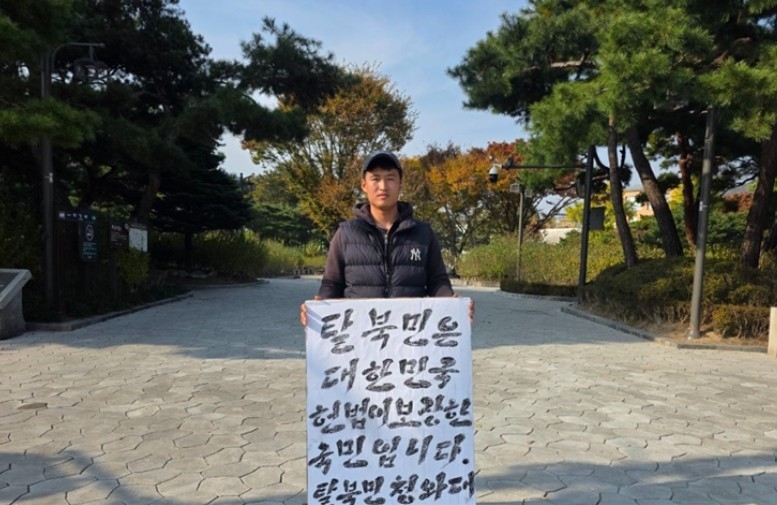 탈북민은
대한민국
헌법이보장한
국민입니다.
탈북민청와대
NY